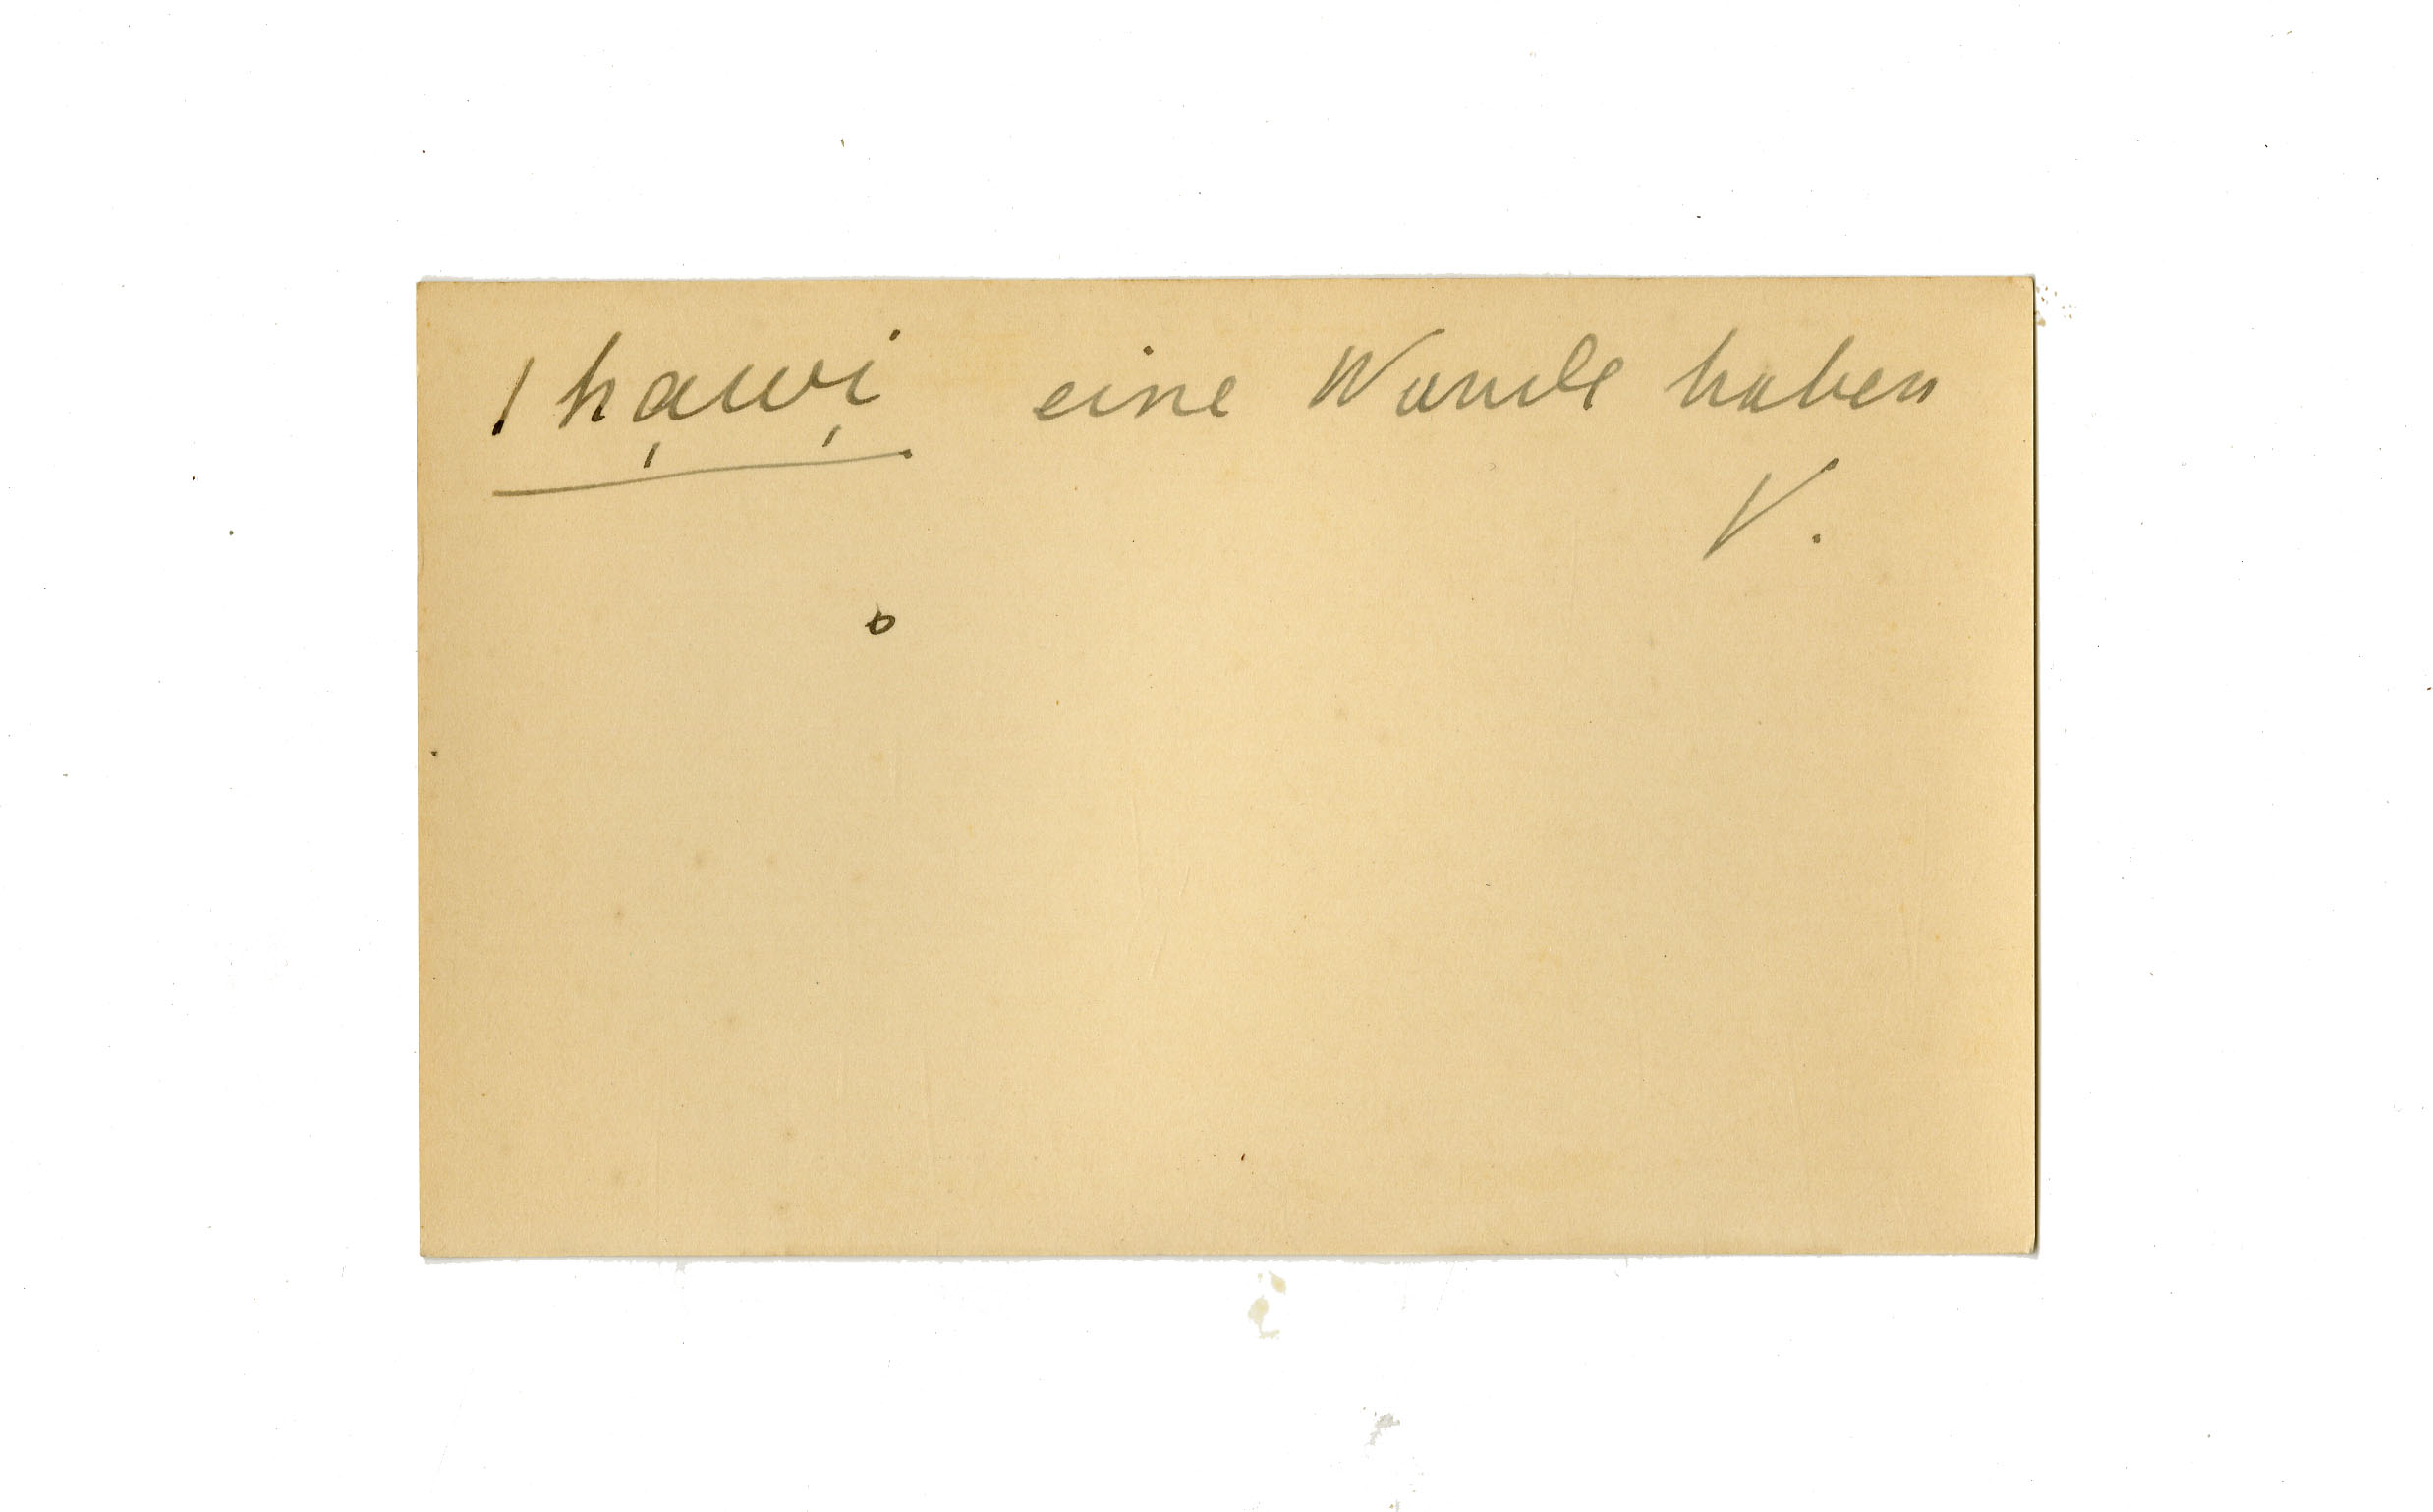 /ha̩wi̩ eine Wunde haben
V.
o